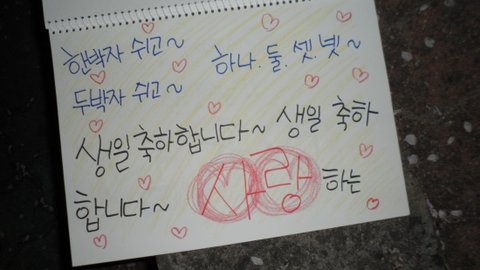 한박자 쉬고~
두박자 쉬고~ 하나.둘.셋.넷~
생일 축하합니다~ 생일 축하
합니다~ 사랑하는